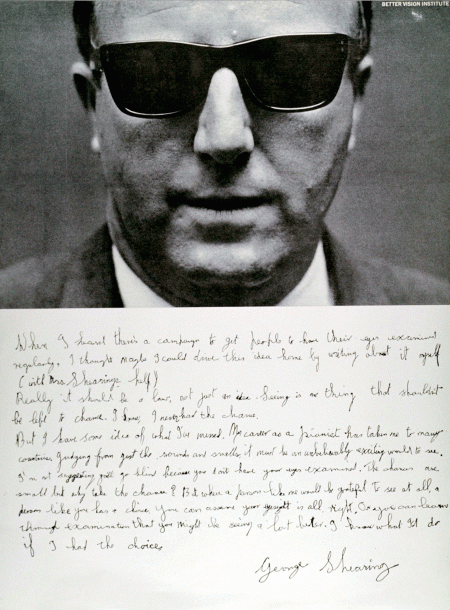 BETTER VISION INSTITUTE
When I heard there's a campaign to get people to have their eyes examined
regularly, I thought maybe I could drive this idea home by writing about it myself
(with Mrs. Shearing's help)
Really it should be a law, not just an idea. Seeing is one thing that shouldn't
be left to chance. I know, I never had the chance.
But I have some idea of what I've missed. My career as a pianist has taken me to many
countries. Judging from just the sounds and smells, it must be an unbelievably exciting world to see.
I'm not suggesting you'll go blind because you don't have your eyes examined. The chances are
small but why take the chance? But when a person like me would be grateful to see at all, a
person like you has a choice. You can assure your eyesight is all right, Or you can learn
through examination that you might be seeing a lot better. I know what I'd do
if I had the choice.
George Shearing